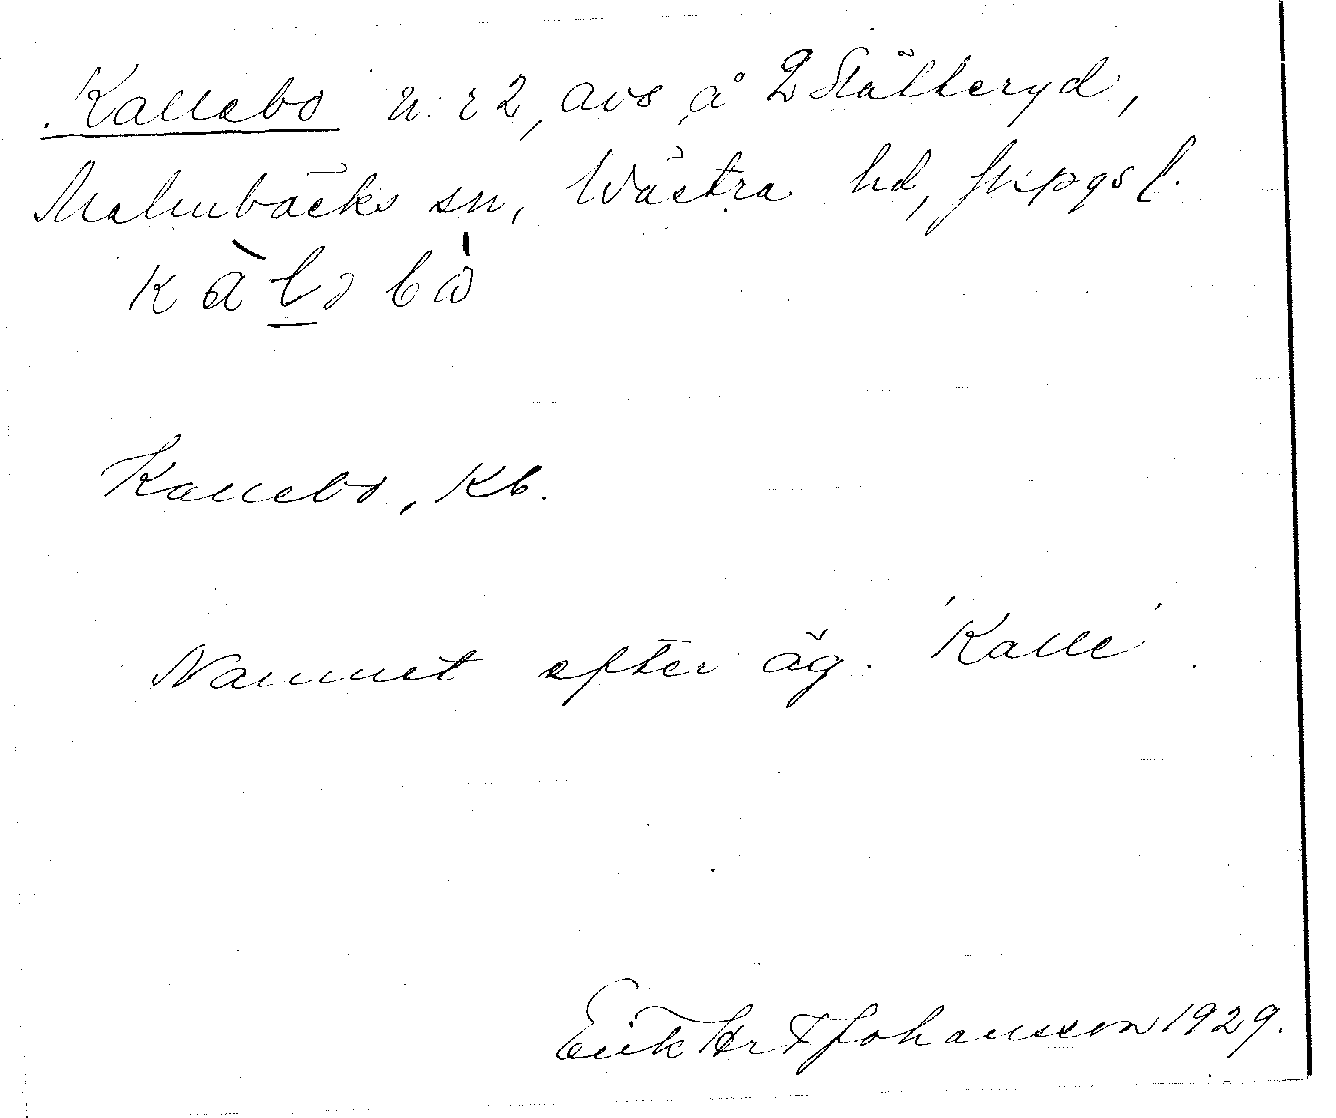 Kallebo n. r 2, avs å 2 Slätteryd,
Malmbäcks sn, Västra hd, Jkpgs l.
kàləbò
Kallebo, Kb.
Namnet efter äg. 'Kalle'.
Erik Johansson 1929.